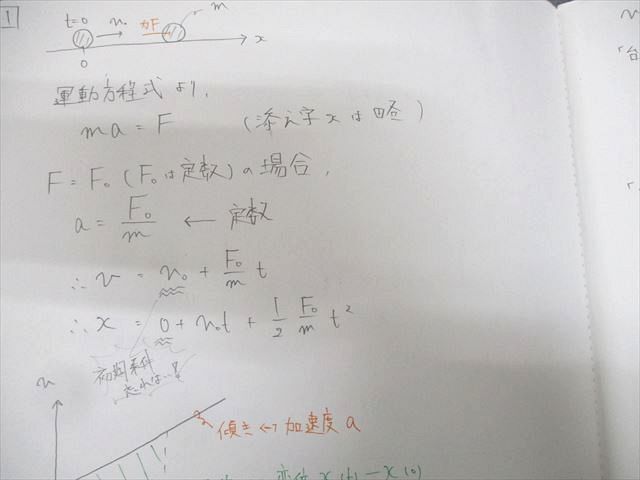 1
t=0 v₀ 力F m
0 x
運動方程式より,
ma = F (添え字xは略)
F = F₀ (F₀は定数)の場合,
a = F₀/m ← 定数
∴ v = v₀ + F₀/m t
∴ x = 0 + v₀t + 1/2 F₀/m t²
初期条件
v
傾き ↔ 加速度 a
変位 x(t) - x(0)